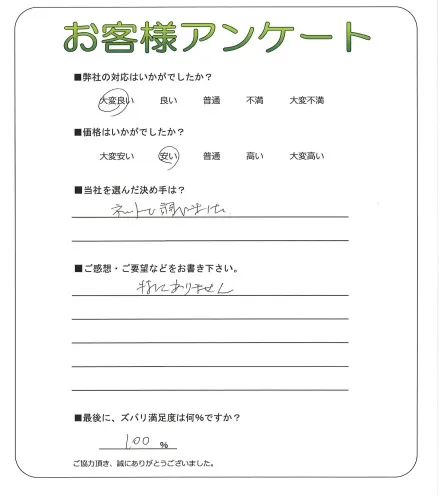 お客様アンケート
■弊社の対応はいかがでしたか?
大変良い 良い 普通 不満 大変不満
■価格はいかがでしたか?
大変安い 安い 普通 高い 大変高い
■当社を選んだ決め手は?
ネットで調べました。
■ご感想・ご要望などをお書き下さい。
特にありません
■最後に、ズバリ満足度は何%ですか?
100 %
ご協力頂き、誠にありがとうございました。